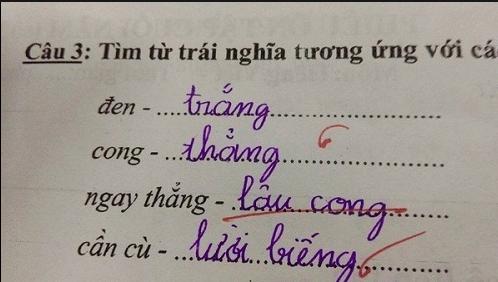 Câu 3: Tìm từ trái nghĩa tương ứng với cá
đen - .....trắng..............................
cong - ...thẳng............................
ngay thẳng - .lâu cong...........
cần cù - ...lười biếng................